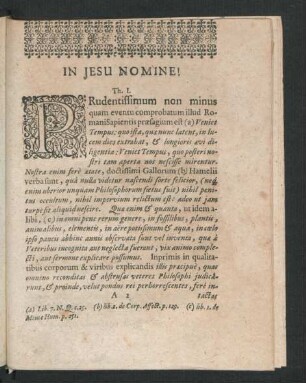 IN JESU NOMINE!
Th. I.
PRudentissimum non minus
quam eventu comprobatum illud Ro-
mani sapientis præsagium est (a) Veniet
Tempus: quo ista, quæ nunc latent, in lu-
cem dies extrahat, & longioris ævi di-
ligentia: Veniet Tempus, quo posteri no-
stri tam aperta nos nescisse mirentur.
Nostra enim ferè ætate, doctissimi Gallorum (b) Hamelii
verba sunt, quâ nulla videtur nascendi sorte felicior, (neq;
enim uberior unquam Philosophorum fœtus fuit) nihil peni-
tus occultum, nihil impervium relictum est: adeò ut jam
turpe sit aliquid nescire. Quæ enim & quanta, ut idem a-
libi, (c) in omni penè rerum genere, in fossilibus, plantis,
animalibus, elementis, in aëre potissimum & aqua, in cœlo
ipso paucis abhinc annis observata sunt vel inventa, quæ à
Veteribus incognita aut neglecta fuerunt, vix animo comple-
cti, aut sermone explicare possumus. Inprimis in qualita-
tibus corporum & viribus explicandis ibi præcipuè, quas
nomine reconditas & abstrusas veteres Philosophi judica-
runt, & proinde, velut pondus rei perhorrescentes, ferè in-
A 2
tactas
(a) Lib. 7. N. Q. c. 25. (b) lib. 2. de Corp. Affect. p. 149. (c) lib. 1. de
Mente Hum. p. 171.